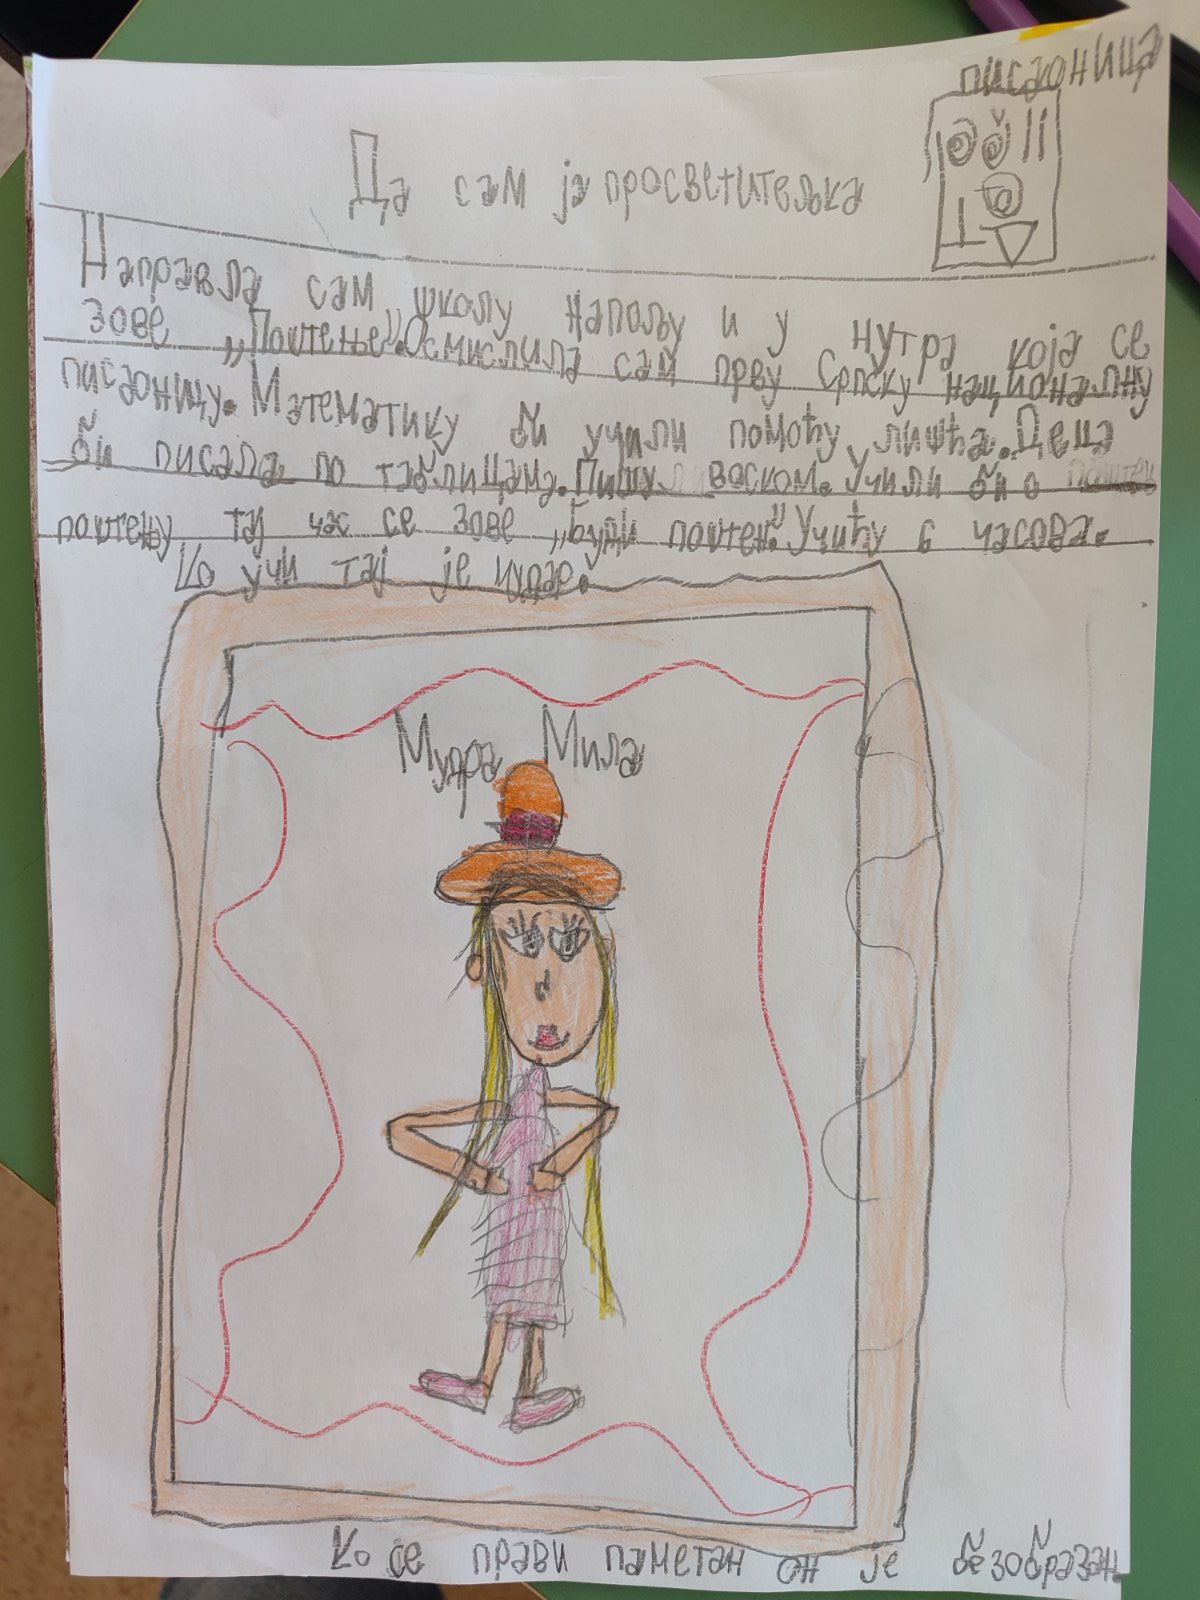 писаоница
Да сам ја просветитељка
Направла сам школу напољу и у нутра која се
зове „Поштење”. Осмислила сам прву Српску националну
писаоницу. Математику би учили помоћу лишћа. Деца
би писала по таблицама. Пишу воском. Учили би о
поштењу тај час се зове „Буди поштен.” Учићу 6 часова.
Ко учи тај је мудар.
Мудра Мила
Ко се прави паметан он је безобразан.